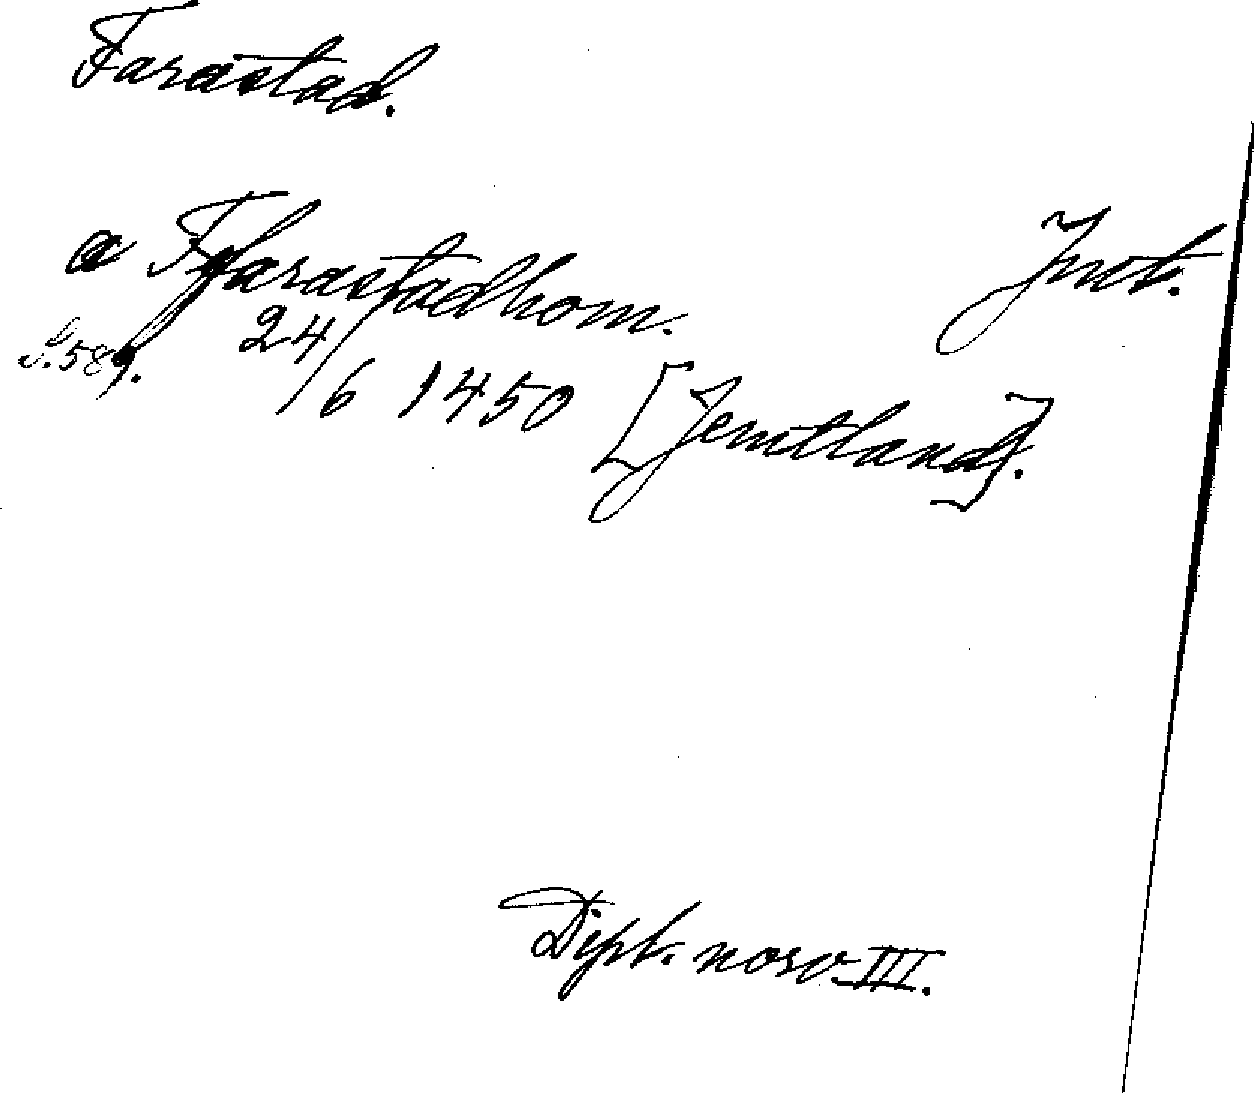 Farastad.
a Ffarastadhom. Jmt.
S. 589. 24/6 1450 [Jemtland].
Dipl. norv. III.